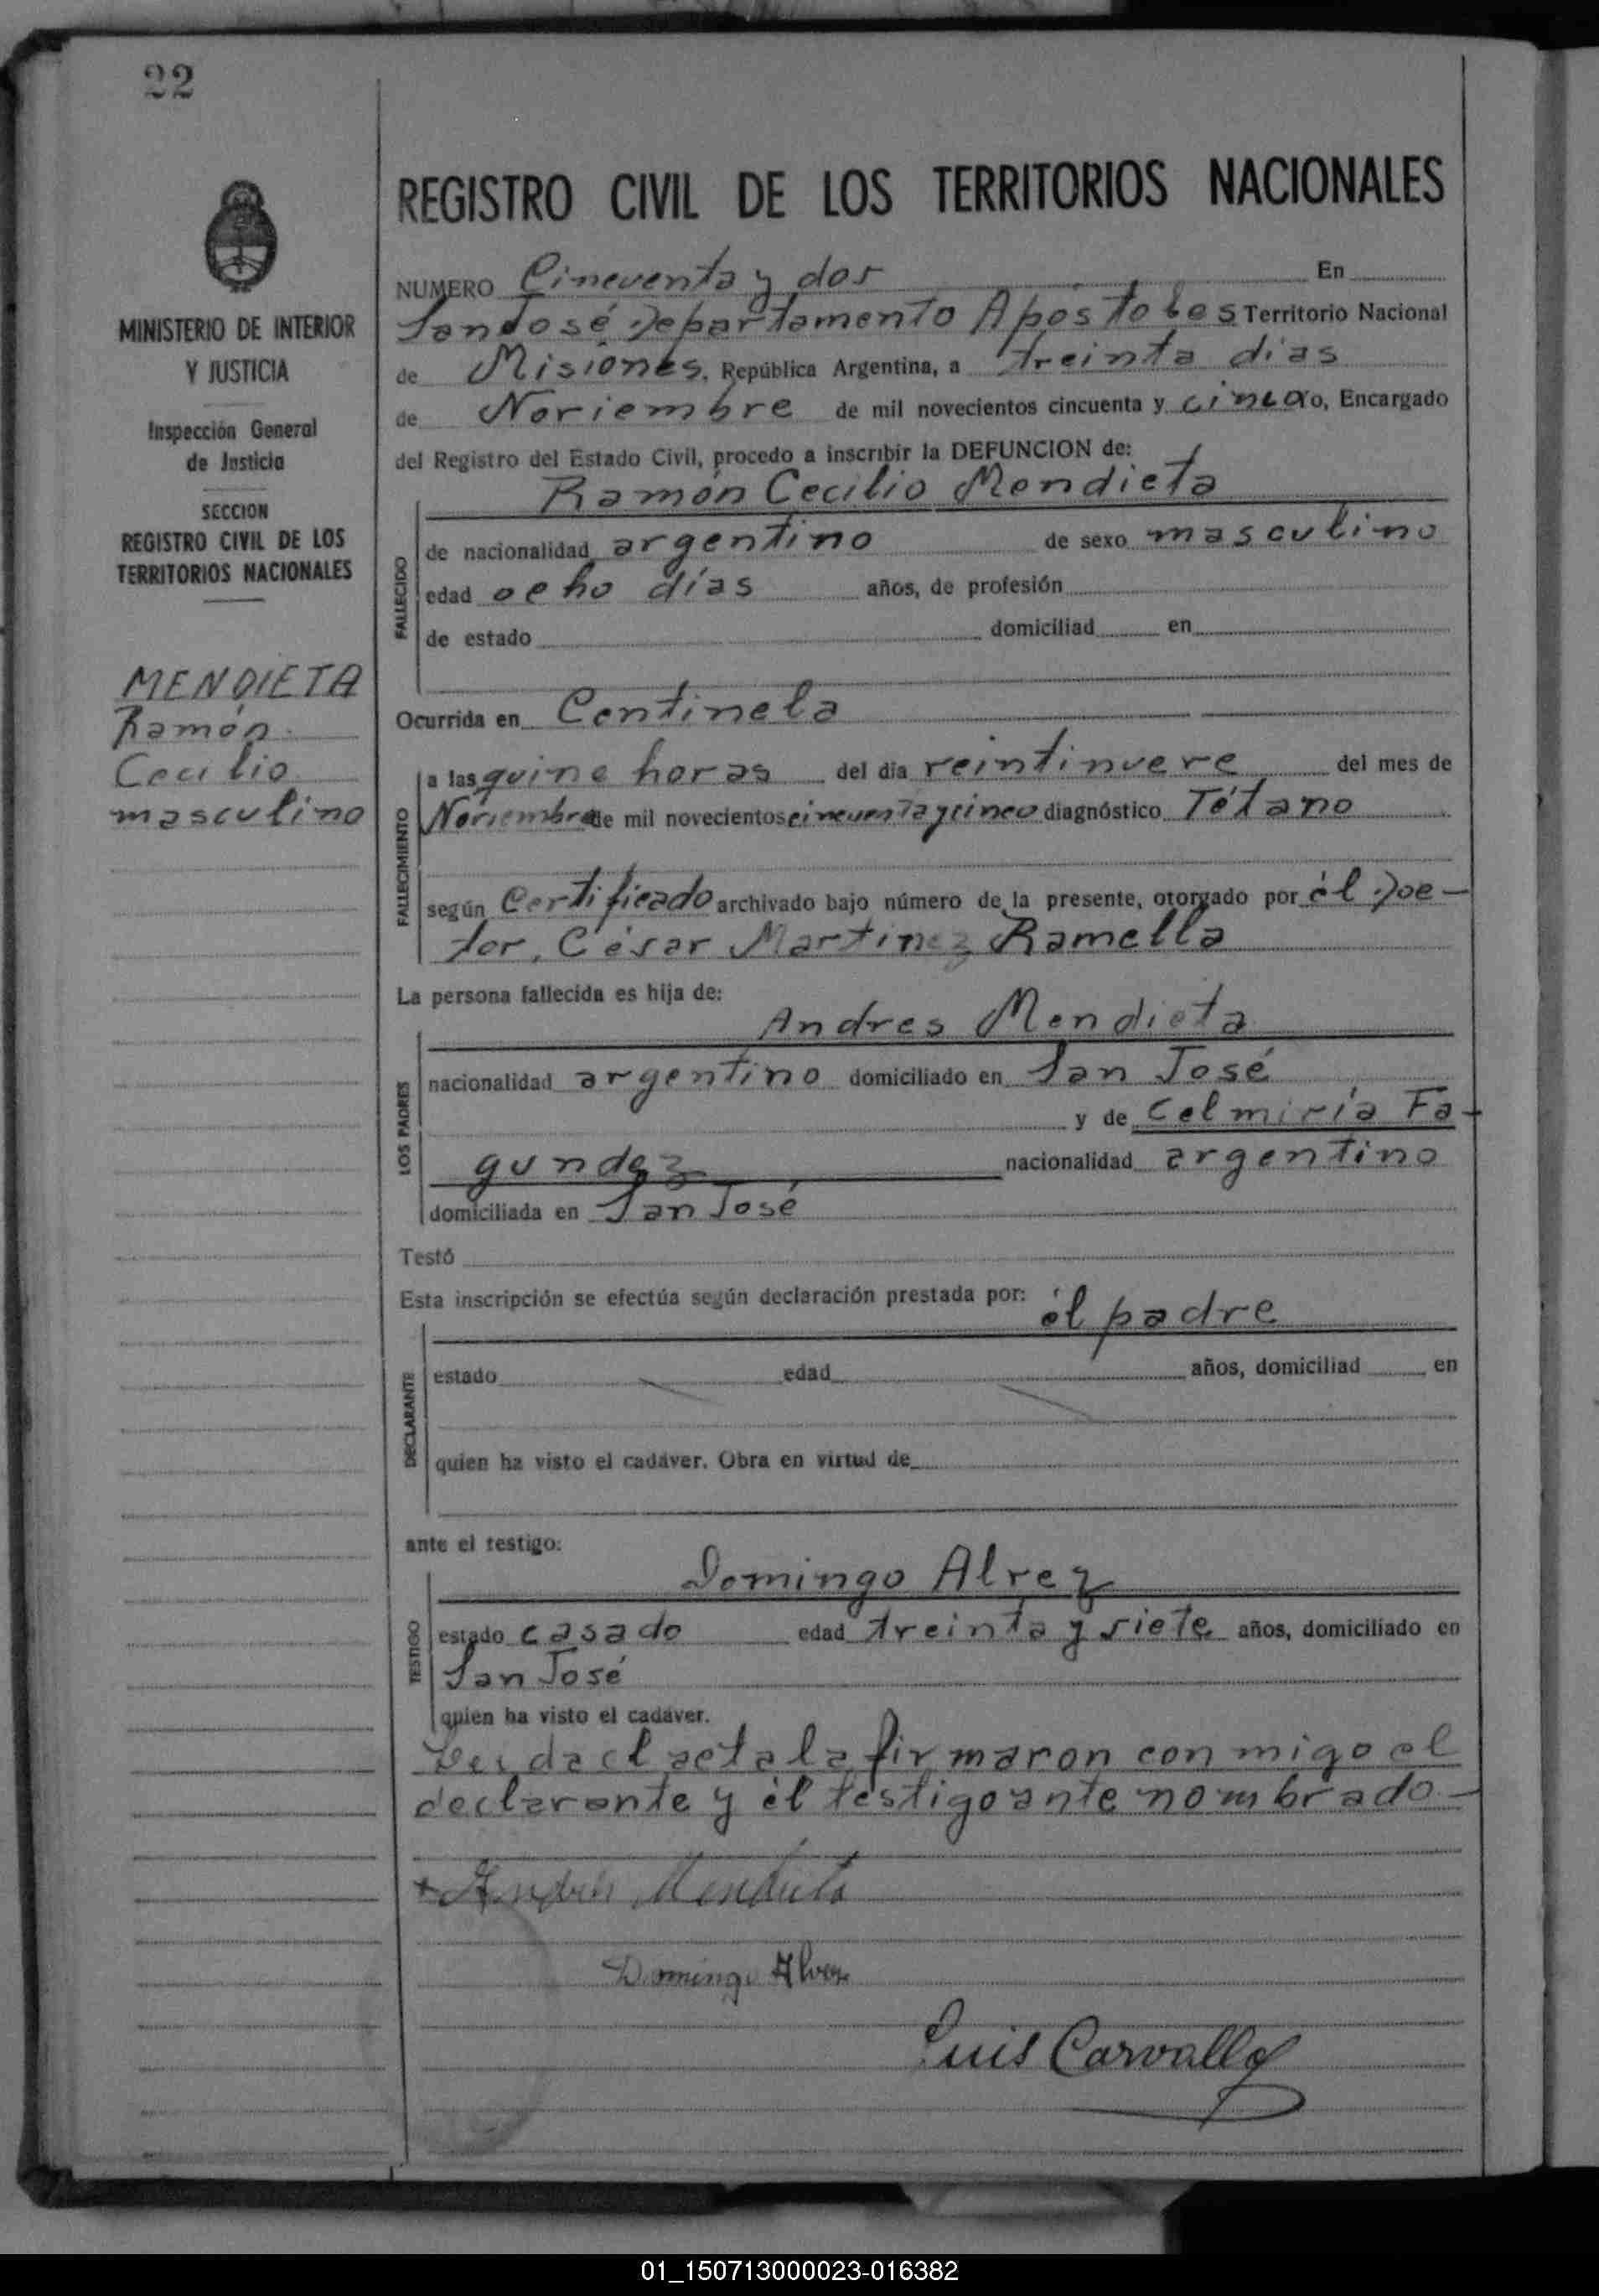 22
MINISTERIO DE INTERIOR
Y JUSTICIA
Inspección General
de Justicia
SECCION
REGISTRO CIVIL DE LOS
TERRITORIOS NACIONALES
MENDIETA
Ramón
Cecilio
masculino
REGISTRO CIVIL DE LOS TERRITORIOS NACIONALES
NUMERO Cincuenta y dos En
San José Departamento Apostoles Territorio Nacional
de Misiones, República Argentina, a treinta días
de Noviembre de mil novecientos cincuenta y cinco yo, Encargado
del Registro del Estado Civil, procedo a inscribir la DEFUNCION de:
Ramón Cecilio Mendieta
FALLECIDO
de nacionalidad argentino de sexo masculino
edad ocho días años, de profesión
de estado domiciliad en
Ocurrida en Centinela
FALLECIMIENTO
a las quince horas del día veintinueve del mes de
Noviembre de mil novecientos cincuenta y cinco diagnóstico Tétano
según Certificado archivado bajo número de la presente, otorgado por él Doc-
tor, César Martinez Ramella
La persona fallecida es hija de:
Andres Mendieta
LOS PADRES
nacionalidad argentino domiciliado en San José
y de Celmiría Fa-
gundez nacionalidad argentino
domiciliada en San José
Testó
Esta inscripción se efectúa según declaración prestada por: él padre
DECLARANTE
estado edad años, domiciliad en
quien ha visto el cadáver. Obra en virtud de
ante el testigo:
Domingo Alvez
TESTIGO
estado casado edad treinta y siete años, domiciliado en
San José
quien ha visto el cadáver.
el acta la firmaron con migo el
declarante y él testigo ante nombrado-
+ Andres Mendieta
Domingo Alvez
Luis Carvallo
01_150713000023-016382